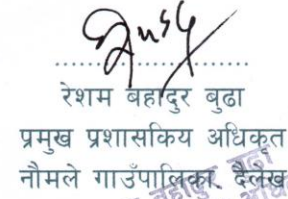 रेशम बहादुर बुढा
प्रमुख प्रशासकिय अधिकृत
नौमले गाउँपालिका, दैलेख